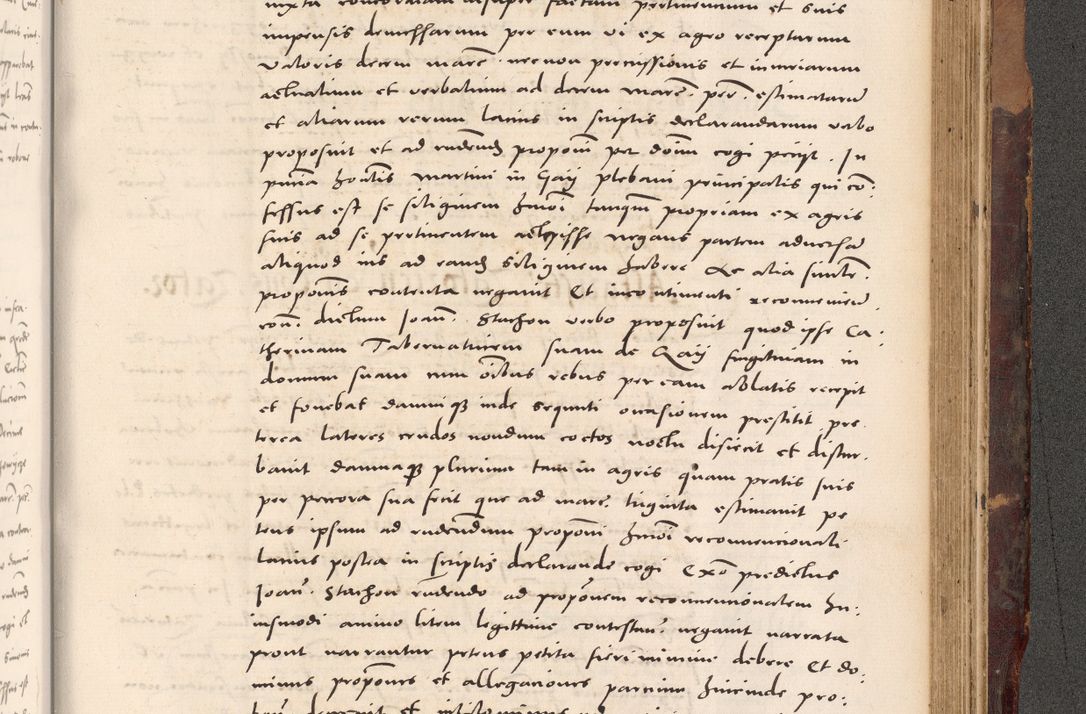 impensis demessarum per eum vi ex agro receptarum
valoris decem marc. necnon percussionis et iniuriarum
actualium et verbalium ad decem marc. per estimatarum
et aliarum rerum latius in scriptis declarandarum verbo
proposuit et ad rndendum proponi per dom cogi petijt. In
pntia honestis Martini in Gaij plebani principalis qui con:
fessus est se siliginem hmoi tanqm propriam ex agris
suis ad se pertinentem accepisse negans partem adversam
aliquod ius ad eandem siliginem habere Ac alia simili
proponis contenta negavit Et incontinenti reconveniendo
dictum Joan. Stachon verbo proposuit quod ipse Ca:
therinam Tabernatricem suam de Gaij fugitivam in
domum suam cum oibus rebus per eam ablatis recepit
et fovebat damnique inde sequuti occasionem prestitit pre
terea lateres crudos nondum coctos noctu disiecit et distur:
bavit damnaque plurima tam in agris quam pratis suis
per peccora sua fecit que ad marc. triginta estimavit pe
tens ipsum ad rndendum proponi hmoi reconvencionali
latius postea in scriptis declarande cogi Exo predictus
Joan. Stachon rndendo ad proponem reconvencionalem hu:
iusmodi animo litem legittime contestan. negavit narrata
prout narrantur petita fieri minime debere Et do:
minus propones et allegaciones partium hincinde pro: